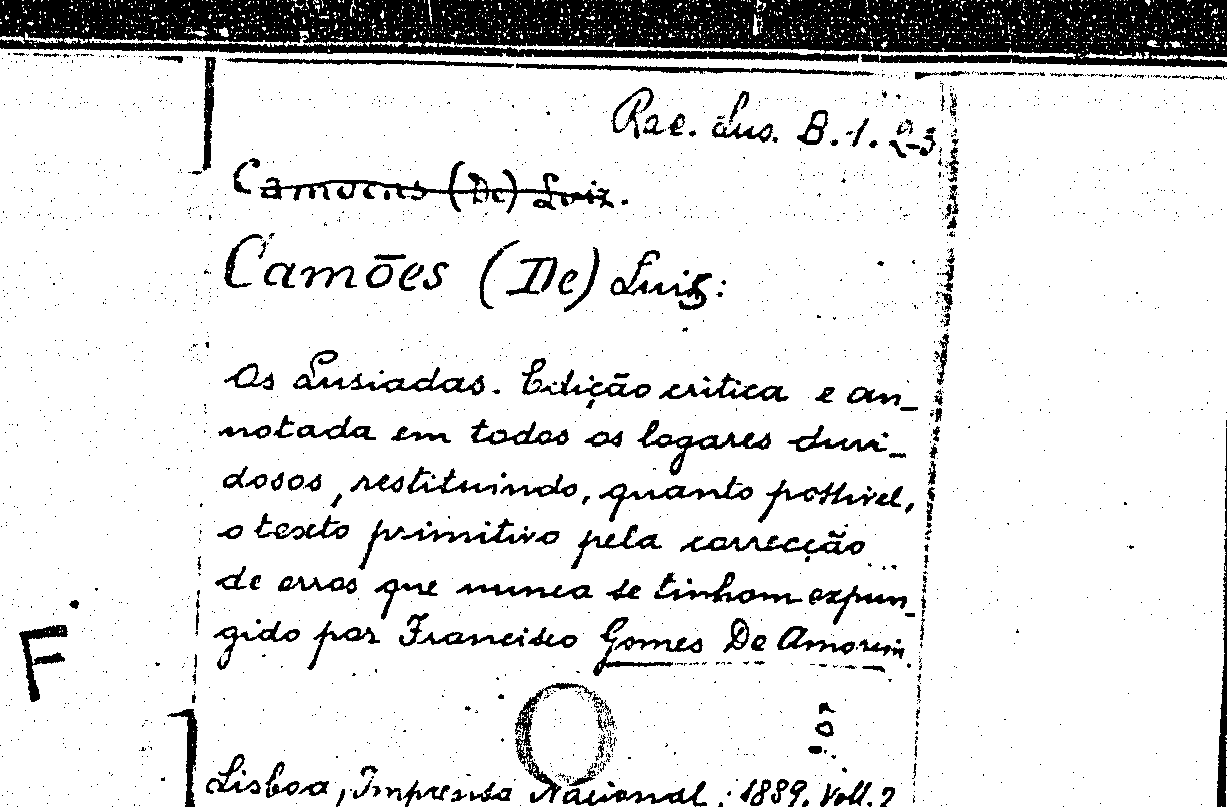 Rac. Lus. B.1.2-3
Camoens (De) Luiz.
Camões (De) Luiz:
Os Lusiadas. Edição critica e an_
notada em todos os logares duvi_
dosos, restituindo, quanto possivel,
o texto primitivo pela correcção
de erros que nunca se tinham expun_
gido por Francisco Gomes De Amorim.
F
Lisboa, Imprensa Nacional; 1889. Voll. 2